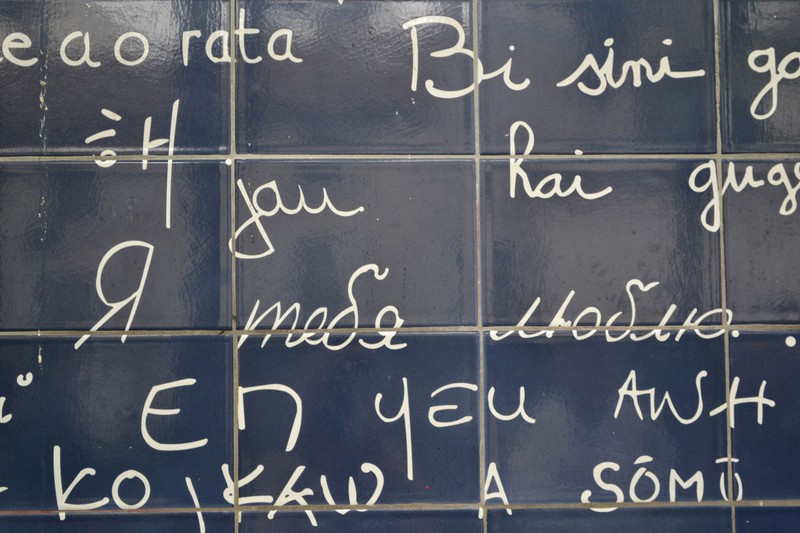 e ao rata
Bi sini ga
해
jau hai gug
Я тебя люблю.
En yeu awh
KO A SŌMŪ